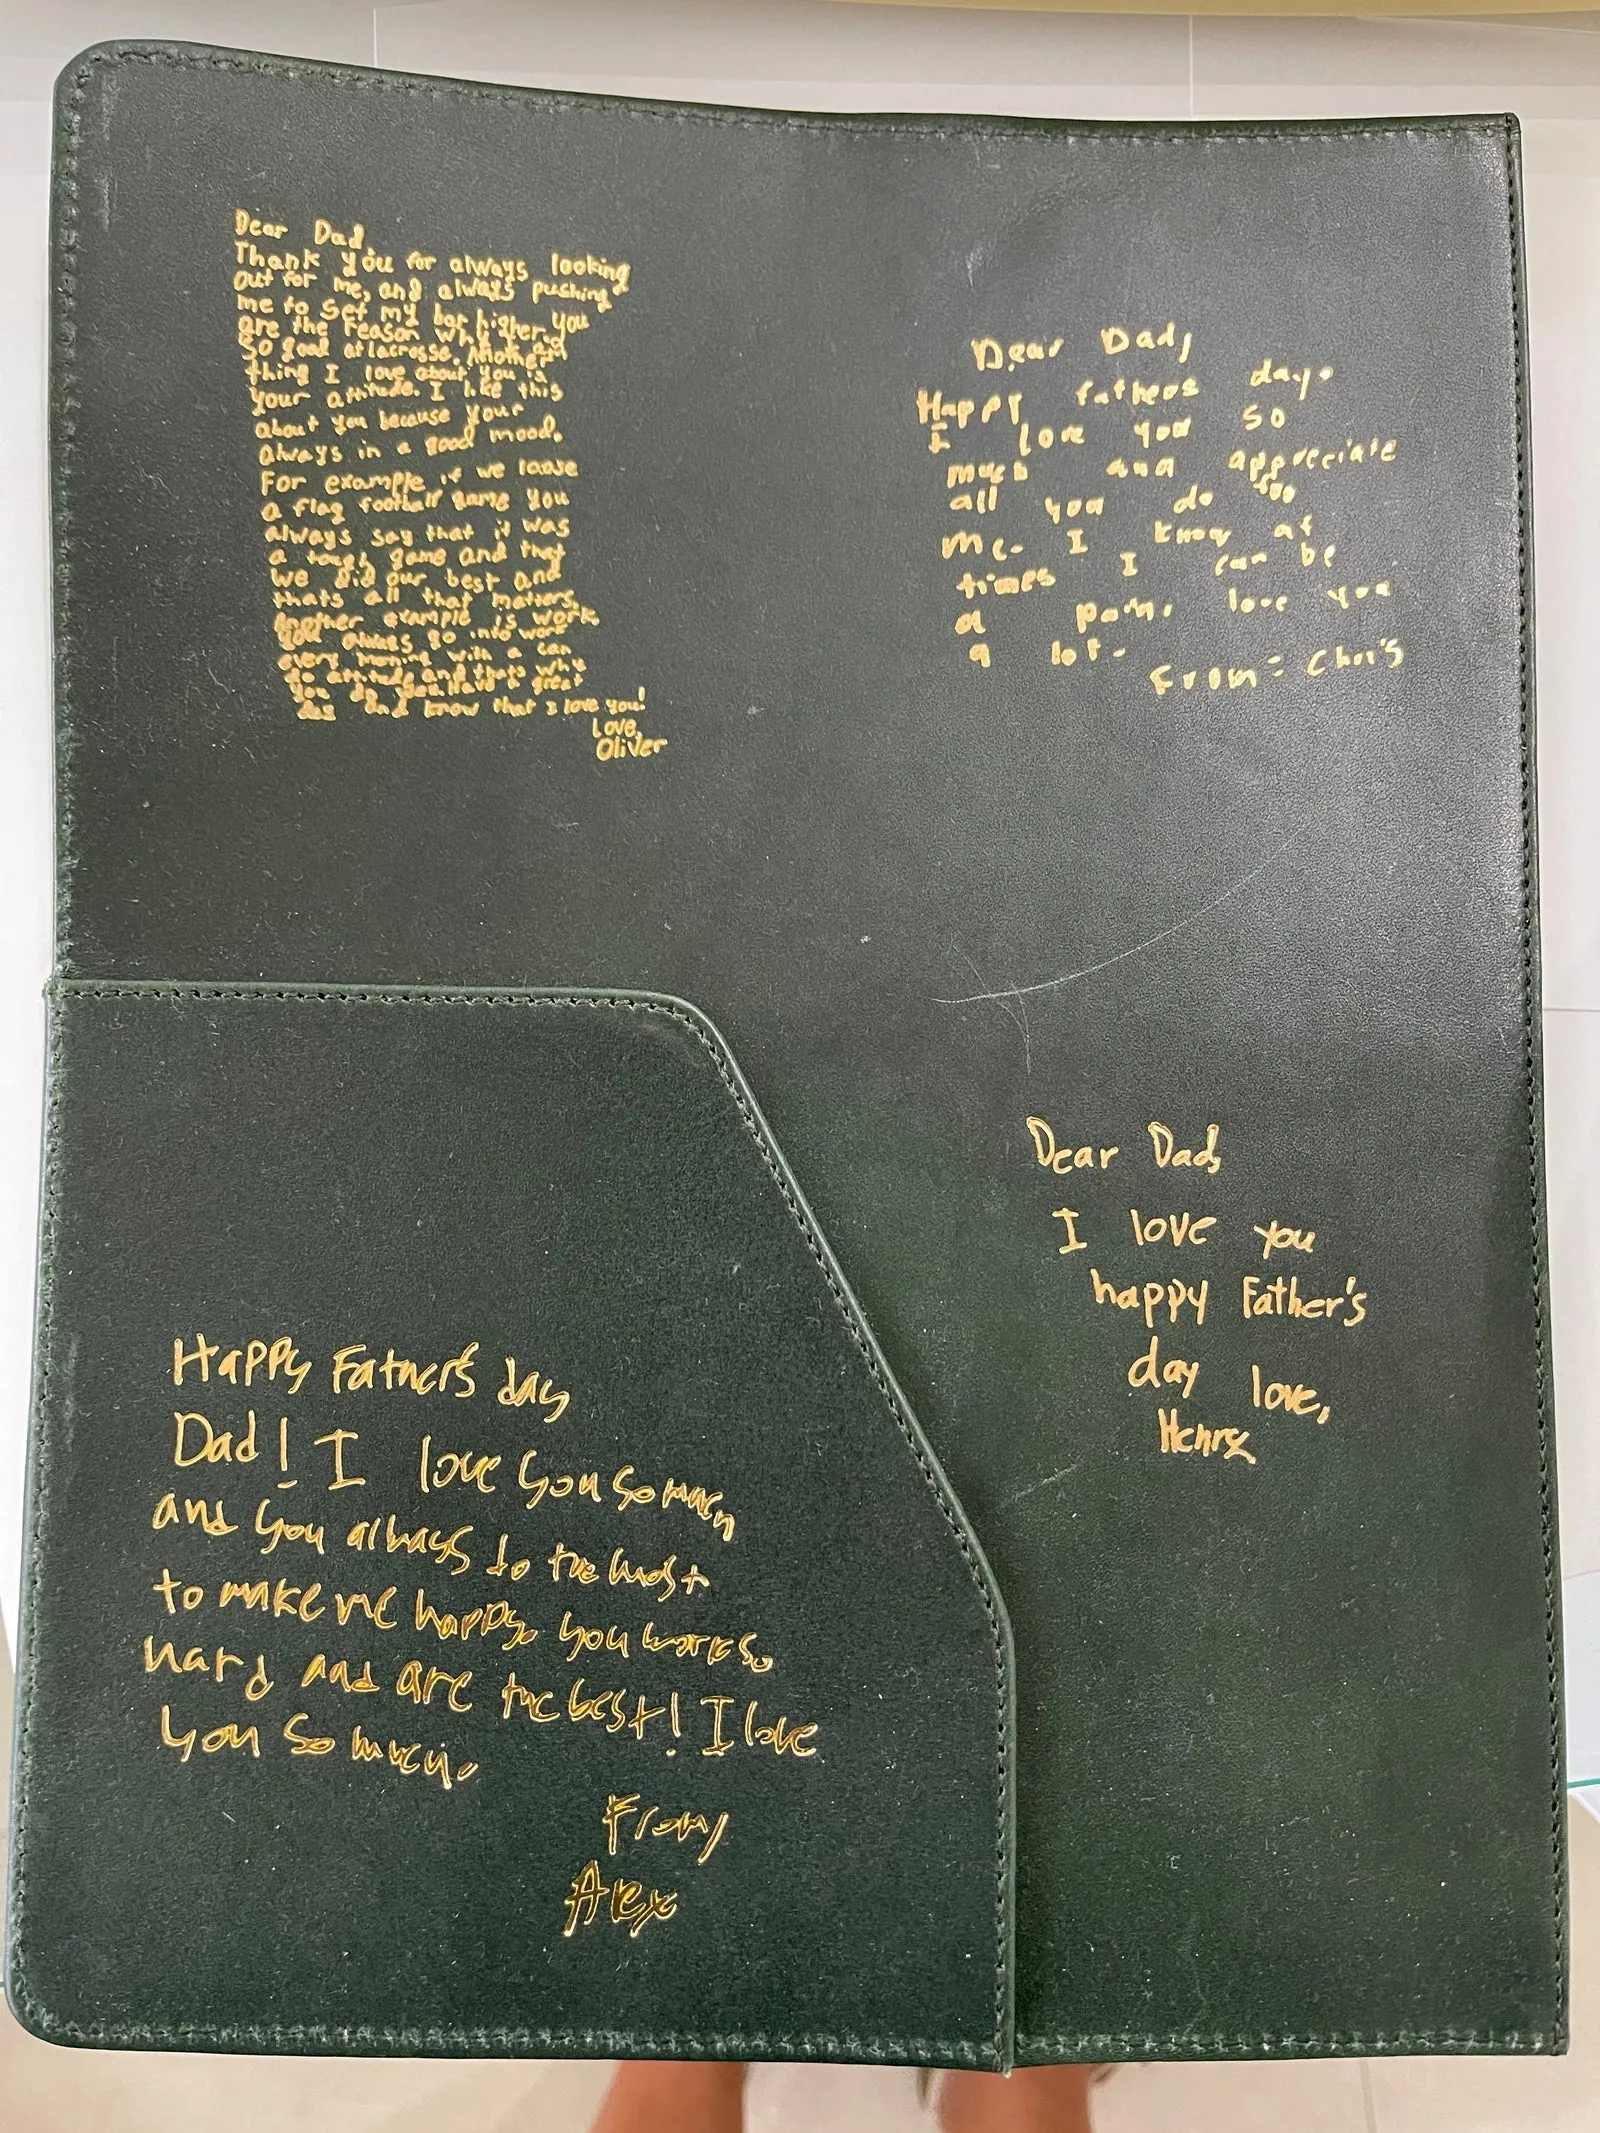 Dear Dad,
Thank you for always looking
out for me, and always pushing
me to set my bar higher. You
are the reason why I am
so good at lacrosse. Another
thing I love about you is
your attitude. I like this
about you because your
always in a good mood.
For example if we loose
a flag football game you
always say that it was
a tough game and that
we did our best and
thats all that matters.
Another example is work.
You always go into work
every morning with a can
do attitude and thats why
you do Have a great
day and know that I love you!
Love,
Oliver
Dear Dad,
Happy fathers day.
I love you so
much and appreciate
all you do for
me. I know at
times I can be
a pain. love you
a lot.
From: Chris
Happy Father's day
Dad! I love you so much
and you always do the most
to make me happy. you work so
hard and are the best! I love
you so much.
From,
Alex
Dear Dad,
I love you
happy Father's
day love,
Henry